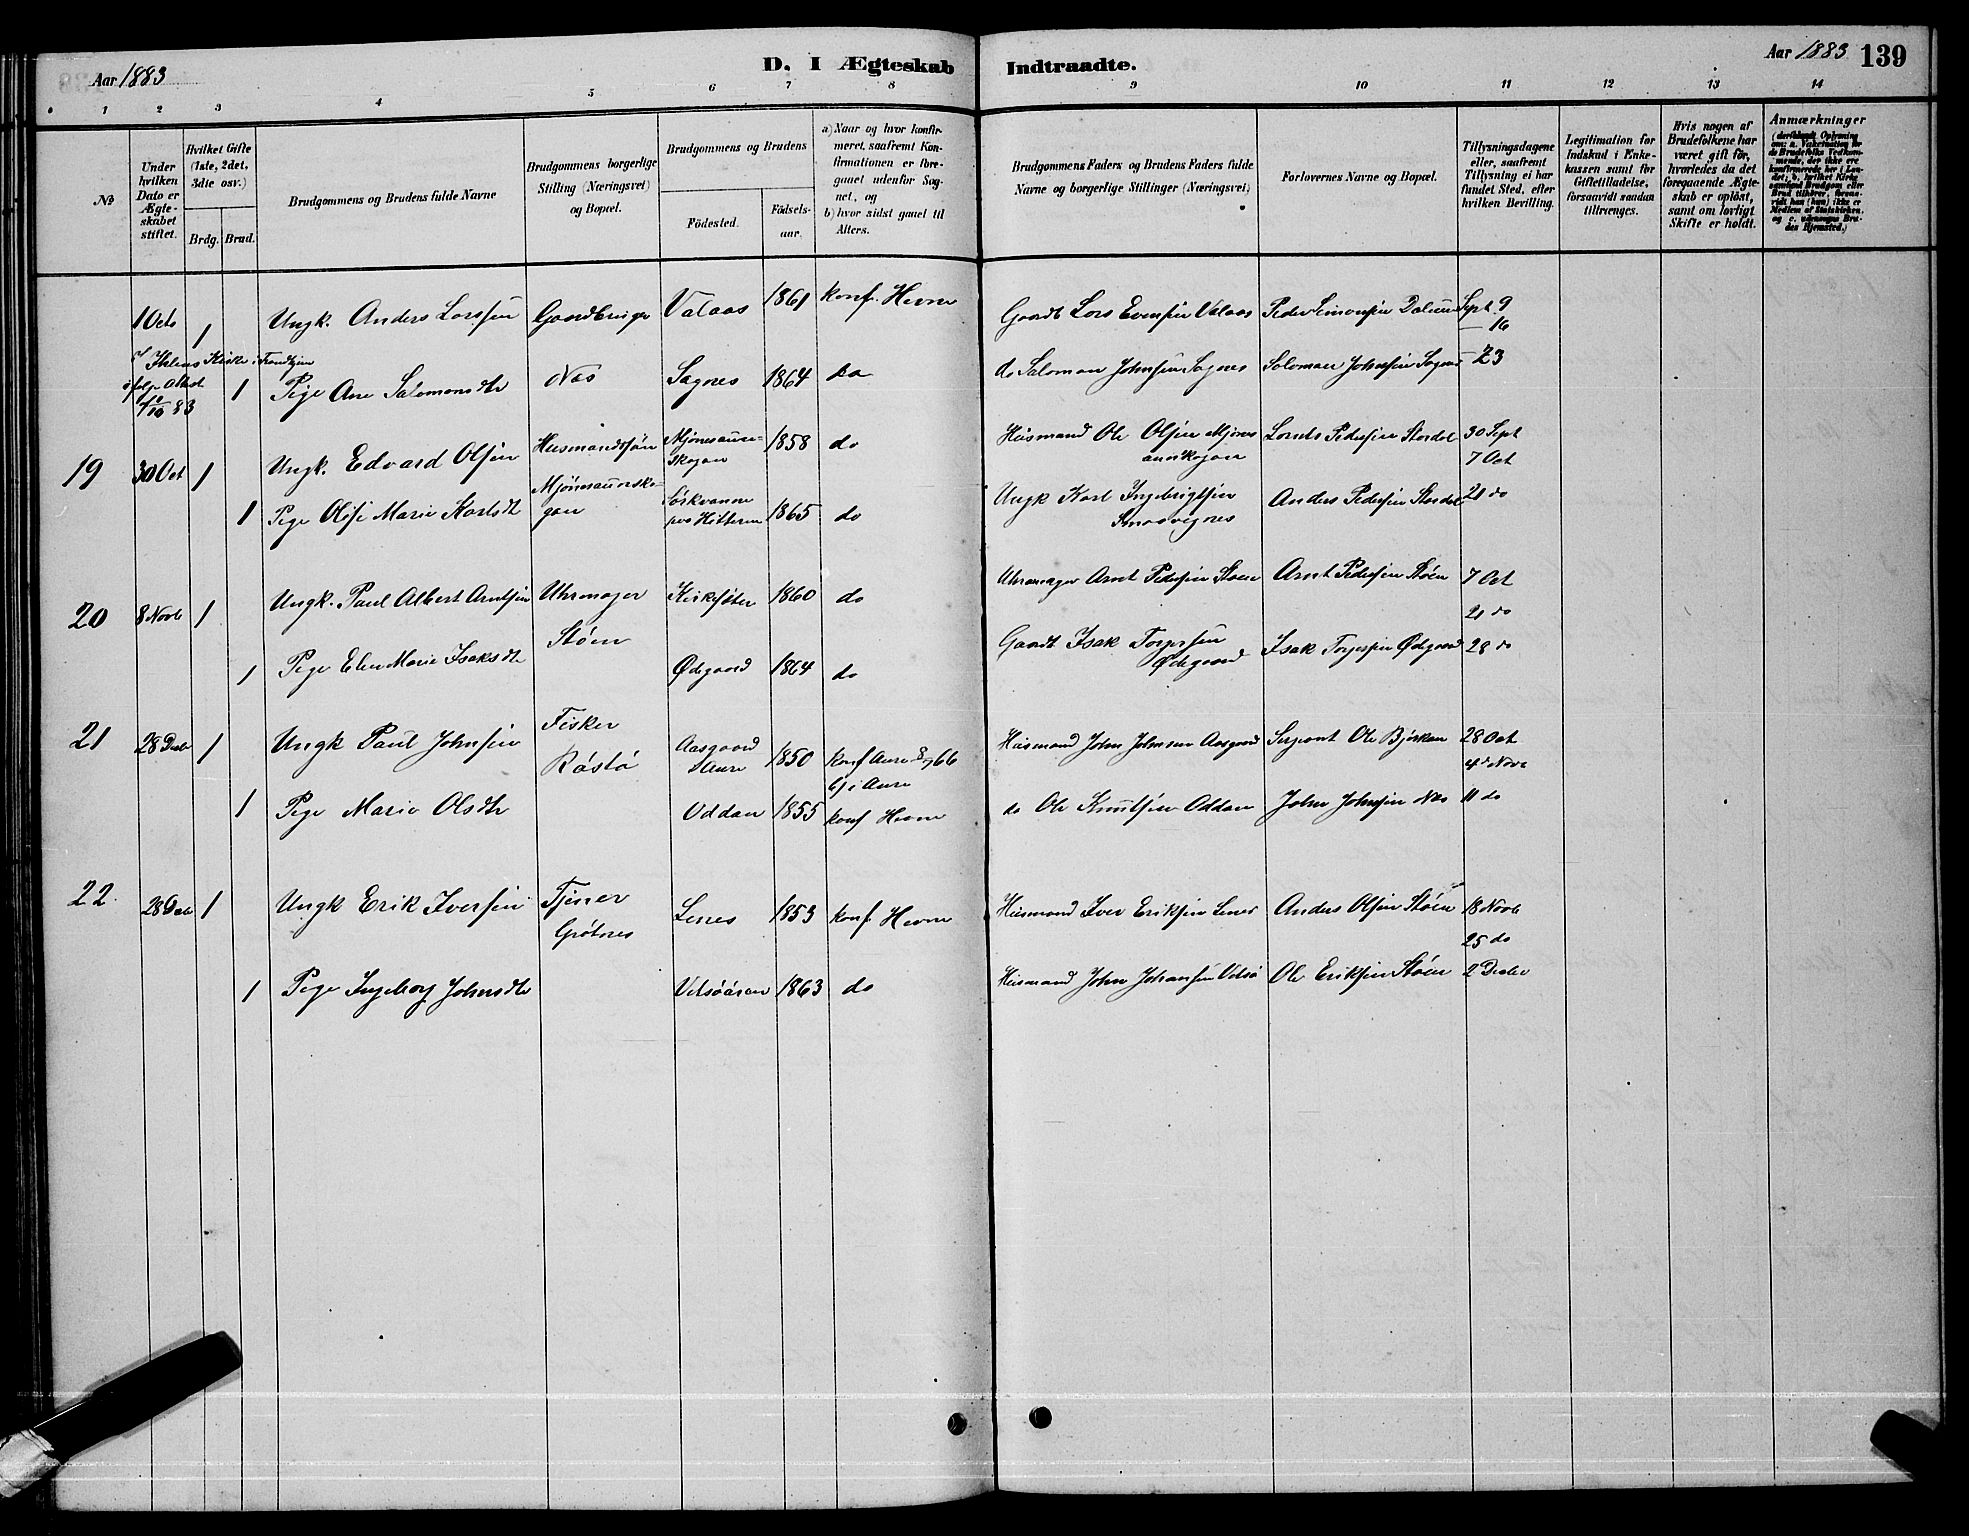 Aar 1883
D. I Ægteskab Indtraadte.
Aar 1883 139
1 2 3 4 5 6 7 8 9 10 11 12 13 14
№
Under hvilken Dato er Ægteskabet stiftet.
Hvilket Gifte (1ste, 2det, 3die osv.)
Brdg. Brud.
Brudgommens og Brudens fulde Navne
Brudgommens borgerlige Stilling (Næringsvei) og Bopæl.
Brudgommens og Brudens
Fødested.
Fødselsaar.
a) Naar og hvor konfirmeret, saafremt Konfirmationen er foregaaet udenfor Sognet, og
b) hvor sidst gaaet til Alters.
Brudgommens Faders og Brudens Faders fulde Navne og borgerlige Stillinger (Næringsvei)
Forlovernes Navne og Bopæl.
Tillysningsdagene eller, saafremt Tillysning ei har fundet Sted, efter hvilken Bevilling.
Legitimation for Indskud i Enkekassen samt for Giftetilladelse, forsaavidt saadan tiltrænges.
Hvis nogen af Brudefolkene har været gift før, hvorledes da det foregaaende Ægteskab er opløst, samt om lovligt Skifte er holdt.
Anmærkninger
1 Octo 1 Ungk. Anders Larssen Gaardbruger Valaas 1861 konf. Hevne Gaardt Lars Evensen Valaas Peder Simonsen Dalum Sept 9
16
Ihlens Kirke i Trondhjem
1 Pige Ane Salomonsdtr Næs Sagnes 1864 do do Salomon Johnsen Sagnes Salomon Johnsen Sagnes 23
19 30 Oct 1 Ungk. Edvard Olsen Husmandssøn Mjønesaunskogan 1858 do Husmand Ole Olsen Mjønesaunskogan Lorents Pedersen Stordal 30 Sept
7 Oct
1 Pige Olise Marie Karlsdtr Mjønesaunskogan Hitteren 1865 do Ungk Karl Ingebrigtsen Anders Pedersen Stordal 21 do
20 8 Novb 1 Ungk. Paul Albert Arntsen Uhrmager Kirksæter 1860 do Uhrmager Arnt Pedersen Støen Arnt Pedersen Støen 7 Oct
21 do
1 Pige Elen Marie Isaksdtr Støen Ødegaard 1864 do Gaardt Isak Torgersen Ødegaard Isak Torgersen Ødegaard 28 do
21 28 Decbr 1 Ungk Paul Johnsen Fisker Røstø Aasgaard Aure 1850 konf Aure 8/7 66 Husmand John Johnsen Aasgaard Sergeant Ole Bjørkan 28 Oct
b) i Aure 4 Novb
1 Pige Marie Olsdtr Oddan 1855 konf Hevne do Ole Knutsen Oddan John Johnsen Næs 11 do
22. 28 Decb 1 Ungk Erik Iversen Tjener Grøtnes Lenes 1853 konf. Hevne Husmand Iver Eriksen Lenes Anders Olsen Støen 18 Novb
25 do
1 Pige Ingeborg Johnsdtr Vitsøåsen 1863 do Husmand John Johansen Vitsø Ole Eriksen Støen 2 Decbr